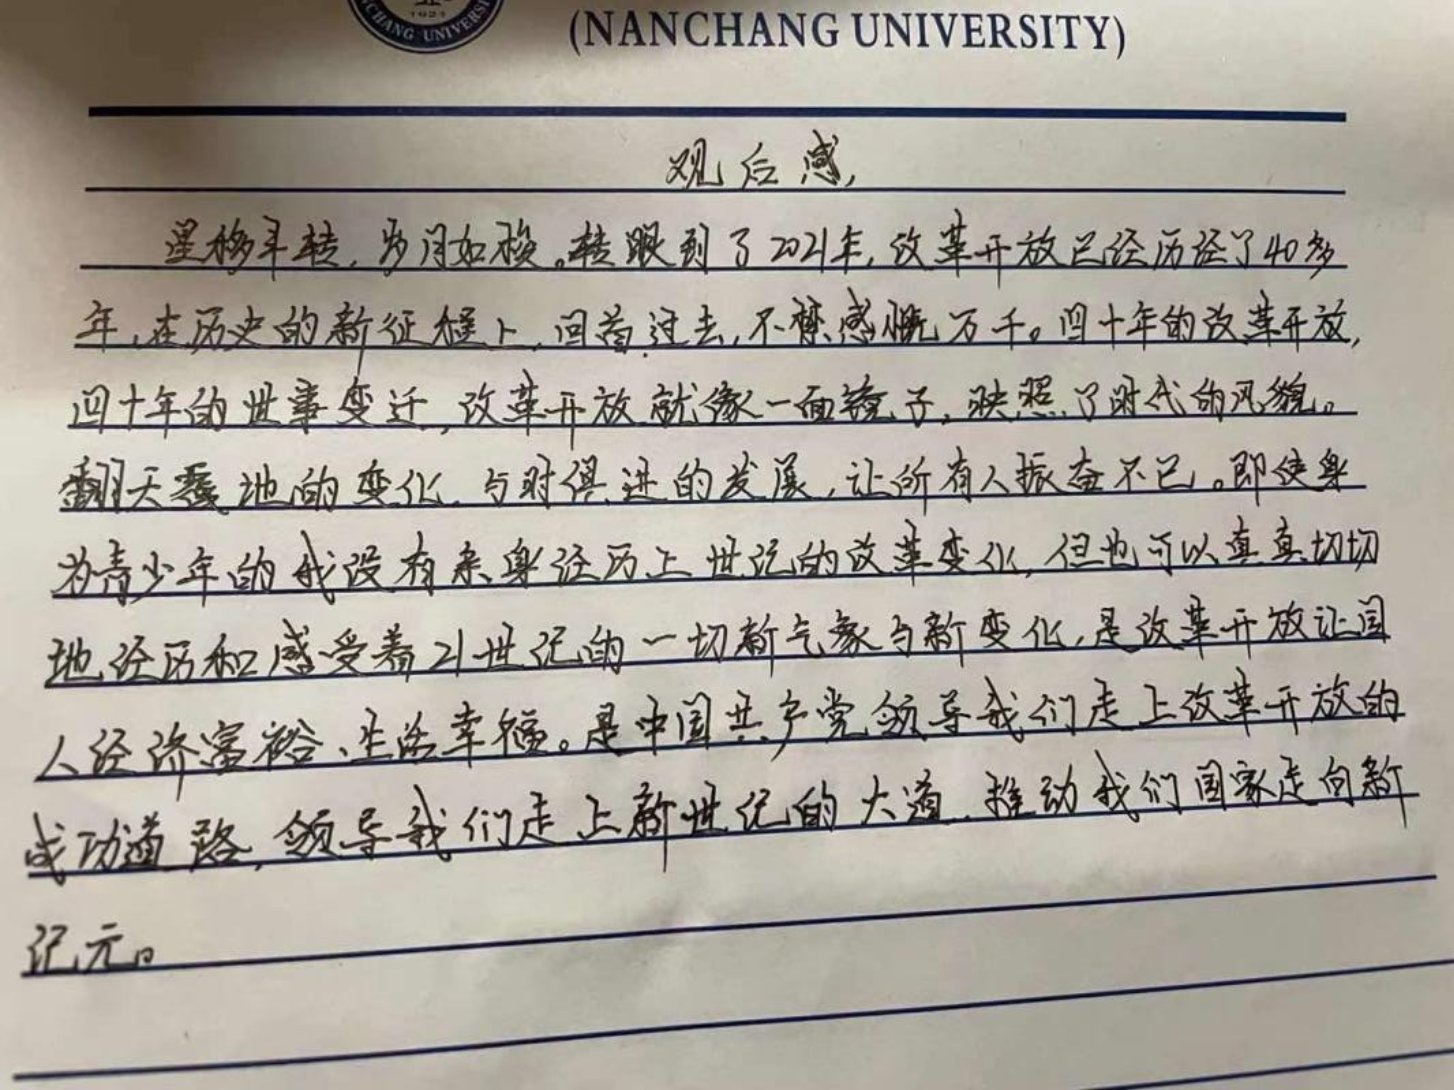 1921
NCHANG UNIVERSI
(NANCHANG UNIVERSITY)
观后感
星移斗转,岁月如梭。转眼到了2021年,改革开放已经历经了40多
年,在历史的新征程上,回首过去,不禁感慨万千。四十年的改革开放,
四十年的世事变迁,改革开放就像一面镜子,映照了时代的风貌。
翻天覆地的变化,与时俱进的发展,让所有人振奋不已。即使身
为青少年的我没有亲身经历上世记的改革变化,但也可以真真切切
地经历和感受着21世记的一切新气象与新变化,是改革开放让国
人经济富裕、生活幸福。是中国共产党领导我们走上改革开放的
成功道路,领导我们走上新世记的大道,推动我们国家走向新
记元。